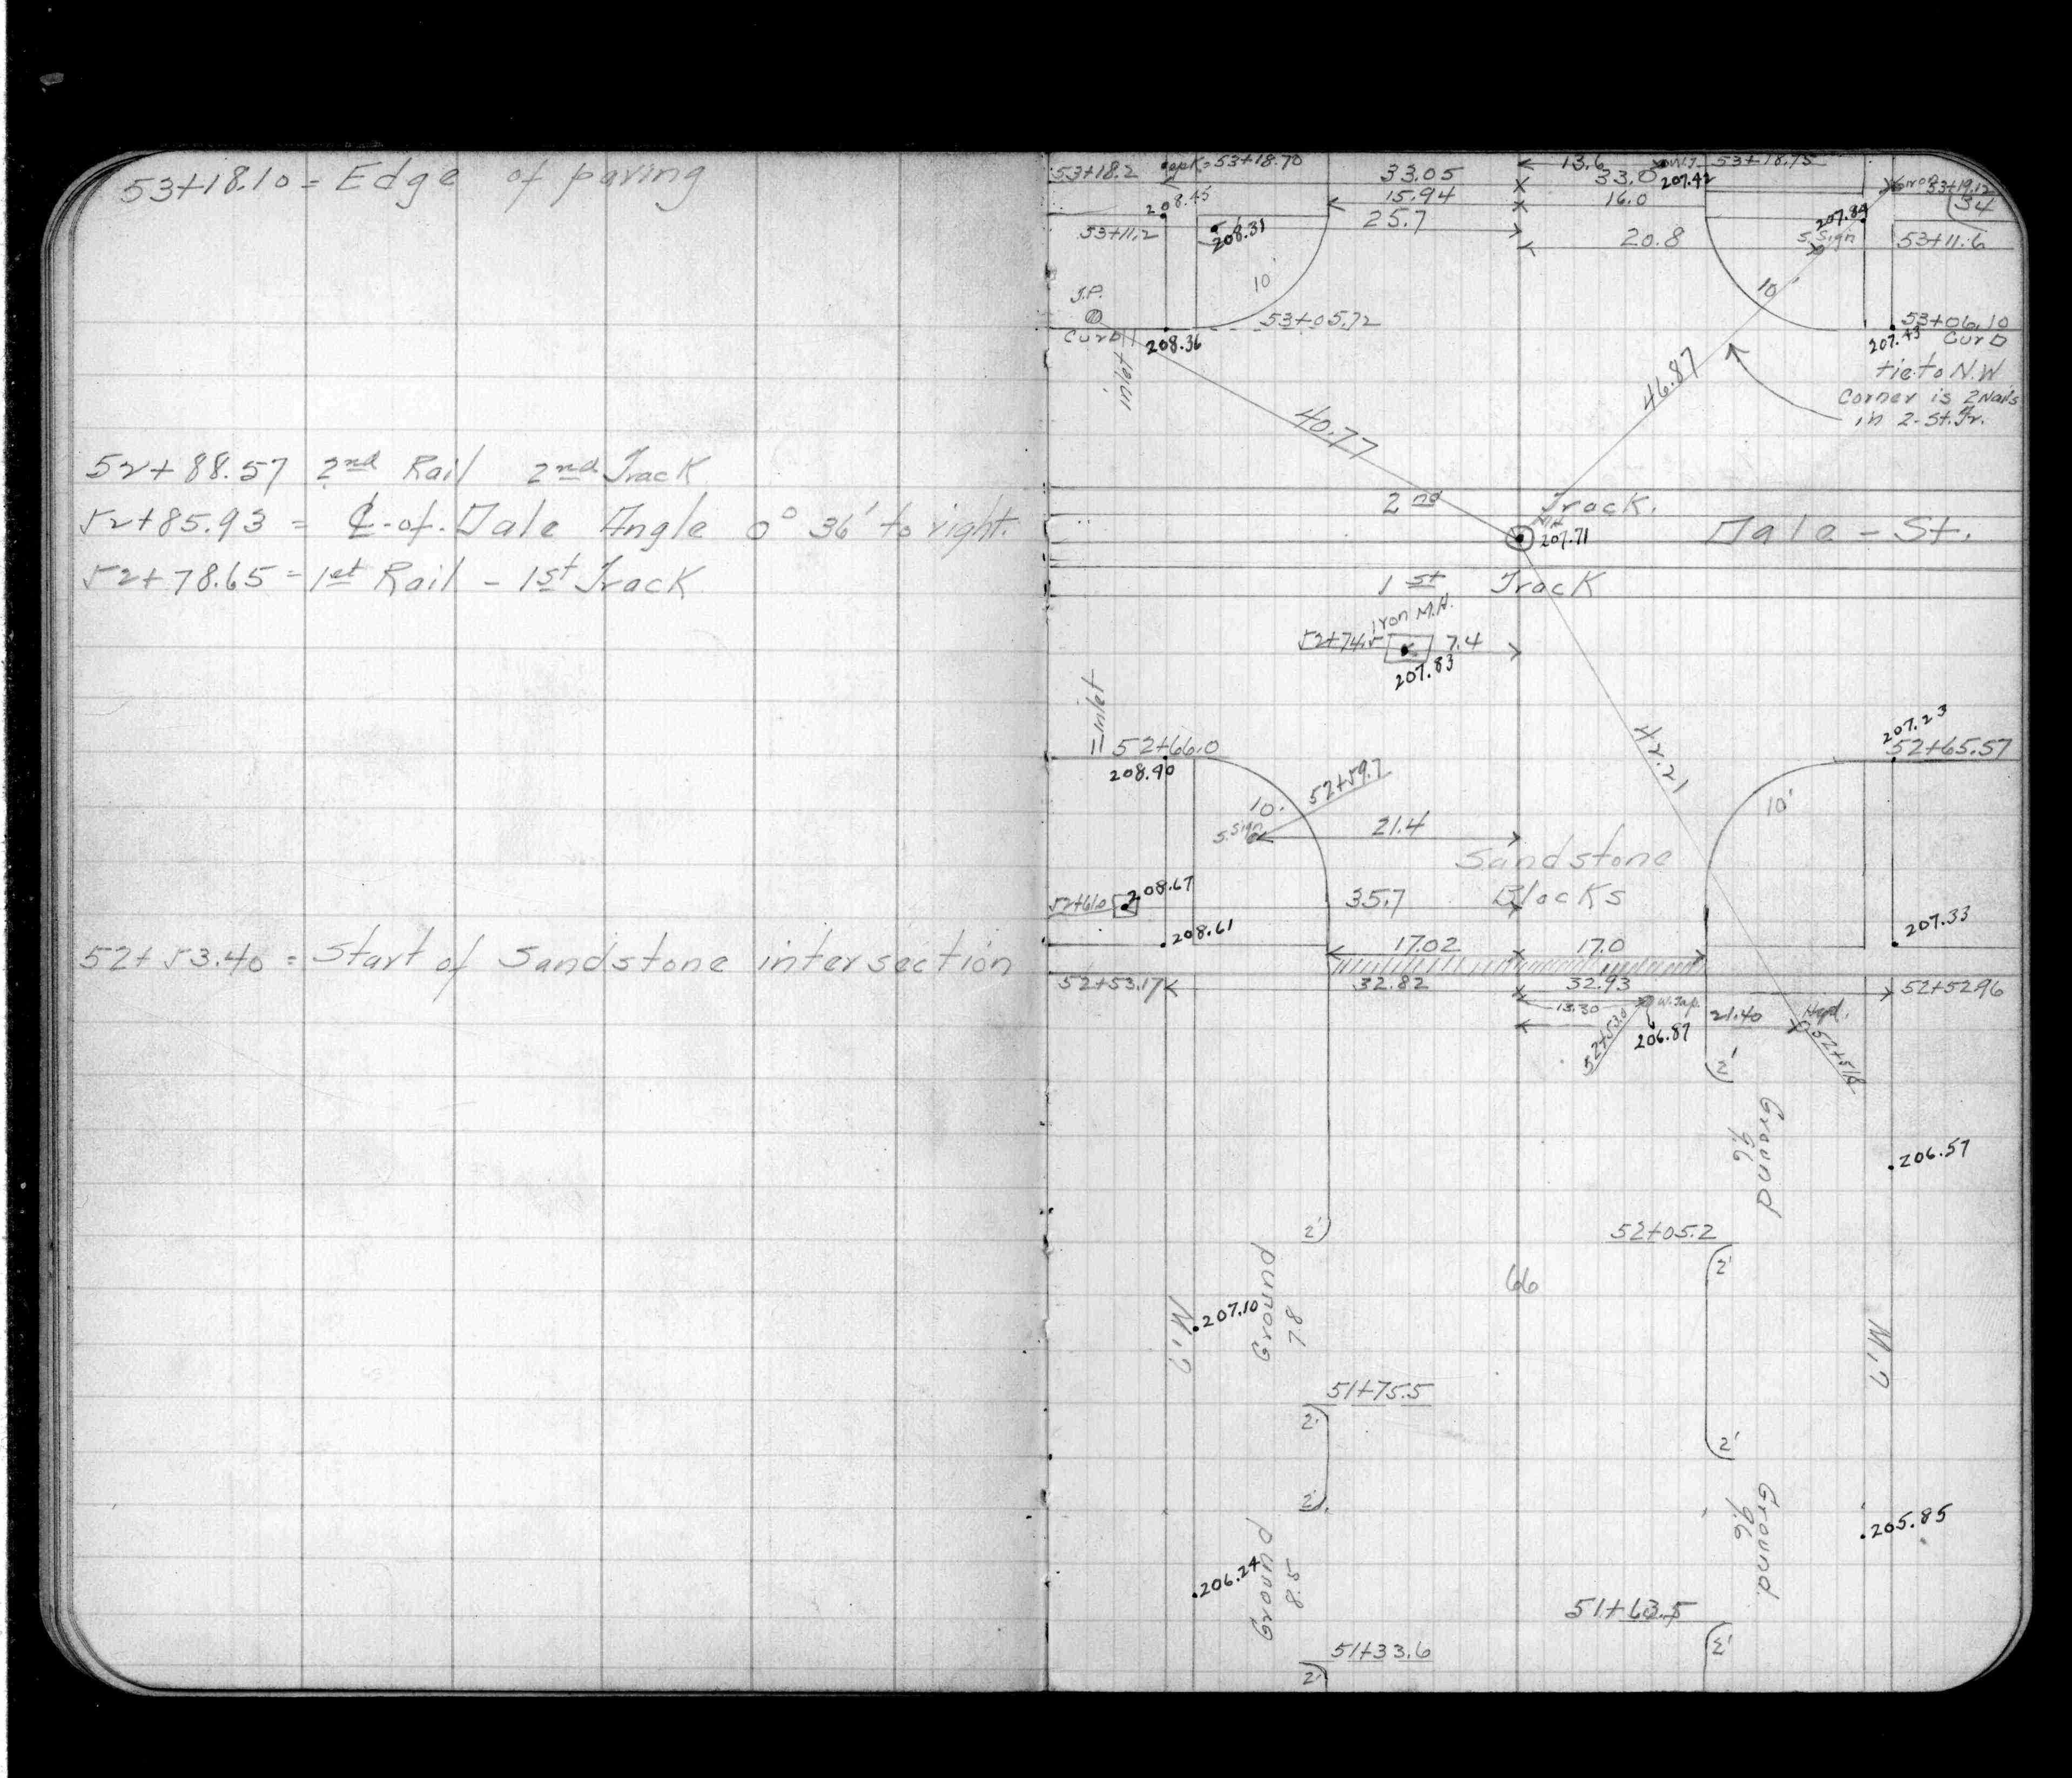 53+18.10 = Edge of paving
52+88.57 2nd Rail 2nd Track
52+85.93 = ℄ of Dale Angle 0° 36' to right.
52+78.65 = 1st Rail - 1st Track
52+53.40 = Start of Sandstone intersection
53+18.2
53+18.70
33.05
13.6
33.0
207.42
53+18.75
53+19.12
34
208.45
15.94
16.0
53+11.2
208.31
25.7
20.8
207.84
S. Sign
53+11.6
10'
10'
T.P.
Curb
208.36
53+05.72
53+06.10
207.43
Curb
inlet
46.87
tie to N.W
Corner is 2 Nails
in 2-St. Tr.
40.77
2nd Track.
207.71
Dale - St.
1st Track
Iron M.H.
52+74.5
7.4
207.83
inlet
52+66.0
208.90
42.21
207.23
52+65.57
52+59.7
10'
S. Sign
21.4
10'
Sandstone
Blocks
52+61.0
208.67
35.7
208.61
207.33
17.02
17.0
52+53.17
32.82
32.93
52+52.96
13.30
W. Tap.
52+53.0
206.87
21.40
Hyd.
52+51.8
2'
Ground
9.6
206.57
2'
52+05.2
2'
66
Ground
7.8
207.10
51+75.5
2'
2'
2'
Ground
9.6
205.85
Ground
8.5
206.24
51+63.5
2'
51+33.6
2'